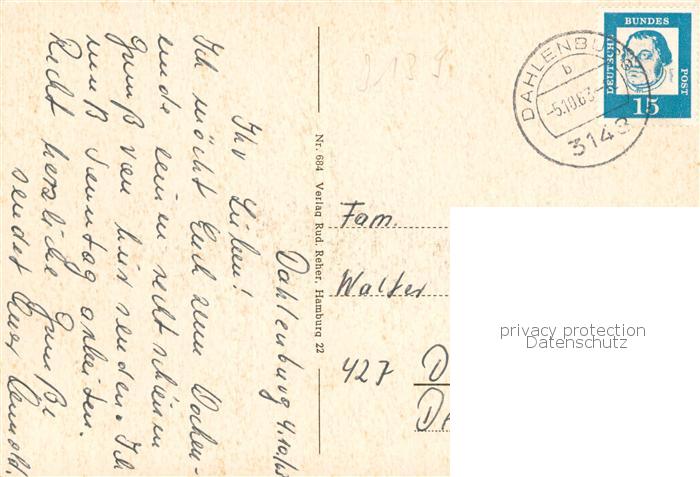 Dahlenburg 4.10.63
Ihr Lieben!
Ich möcht Euch zum Wochen-
ende einen recht schönen
Gruß von hier senden. Ich
muß Sonntag arbeiten.
Recht herzliche Grüße
sendet Euer Arnold.
Nr. 684 Verlag Rud. Reher, Hamburg 22
DAHLENBURG
b
-5.10.63
3143
DEUTSCHE
BUNDES
POST
15
Fam.
Walter
427 D
privacy protection
Datenschutz